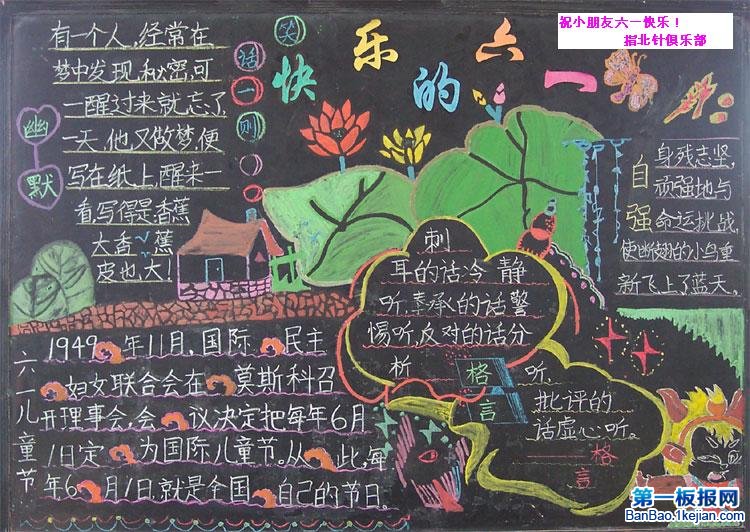 祝小朋友六一快乐！
指北针俱乐部
快乐的六一
笑话一则
幽默
有一个人,经常在
梦中发现秘密,可
一醒过来就忘了,
一天,他又做梦,便
写在纸上,醒来一
看,写得是香蕉
大香蕉
皮也大!
自强
身残志坚,
顽强地与
命运挑战,
使断翅的小鸟重
新飞上了蓝天。
刺
耳的话冷静
听,奉承的话警
惕听,反对的话分
析听,
批评的
话虚心听。
——格
言
格言
六一儿童节
1949年11月,国际民主
妇女联合会在莫斯科召
开理事会,会议决定把每年6月
1日定为国际儿童节。从此,每
年6月1日,就是全国自己的节日。
第一板报网
BanBao.1kejian.com